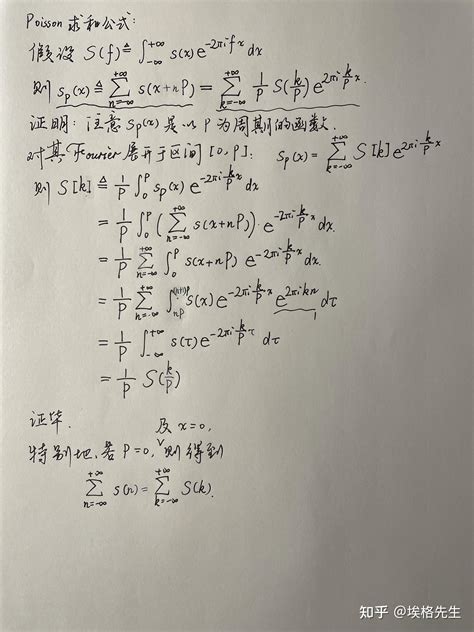 Poisson 求和公式:
假设 S(f) ≜ ∫_{-∞}^{+∞} s(x) e^{-2πi f x} dx
则 s_p(x) ≜ ∑_{n=-∞}^{+∞} s(x+nP) = ∑_{k=-∞}^{+∞} 1/P S(k/P) e^{2πi k/P x}.
证明: 注意 s_p(x) 是以 P 为周期的函数.
对其 Fourier 展开于区间 [0, P]: s_p(x) = ∑_{k=-∞}^{+∞} S[k] e^{2πi k/P x}
则 S[k] ≜ 1/P ∫_0^P s_p(x) e^{-2πi k/P x} dx
= 1/P ∫_0^P (∑_{n=-∞}^{+∞} s(x+nP)) · e^{-2πi k/P x} dx.
= 1/P ∑_{n=-∞}^{+∞} ∫_0^P s(x+nP) e^{-2πi k/P x} dx.
= 1/P ∑_{n=-∞}^{+∞} ∫_{nP}^{(n+1)P} s(x) e^{-2πi k/P x} e^{2πikn} dτ
1
= 1/P ∫_{-∞}^{+∞} s(τ) e^{-2πi k/P τ} dτ
= 1/P S(k/P)
证毕.
及 x=0,
特别地, 若 P=0, ∨ 则得到
∑_{n=-∞}^{+∞} s(n) = ∑_{k=-∞}^{+∞} S(k).
知乎 @埃格先生